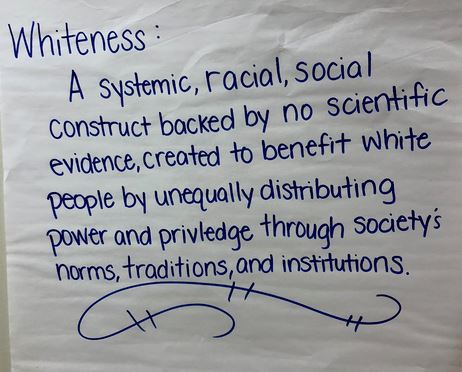 Whiteness:
A systemic, racial, social
construct backed by no scientific
evidence, created to benefit white
people by unequally distributing
power and privledge through society's
norms, traditions, and institutions.